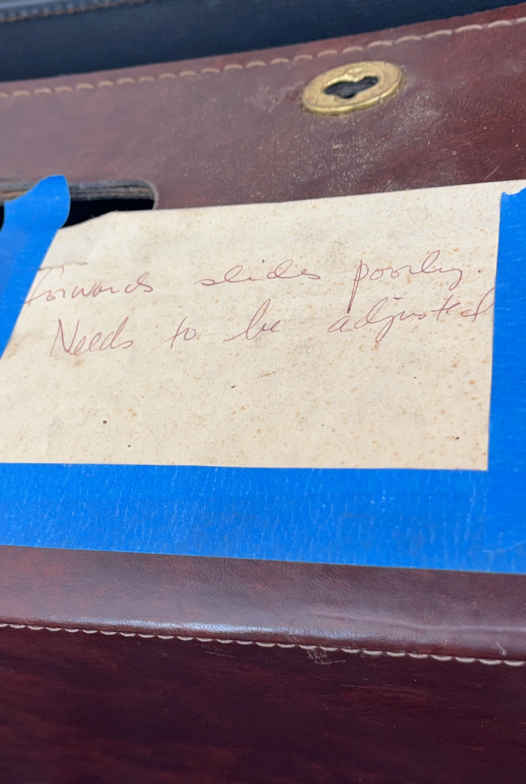 forwards slides poorly.
Needs to be adjusted